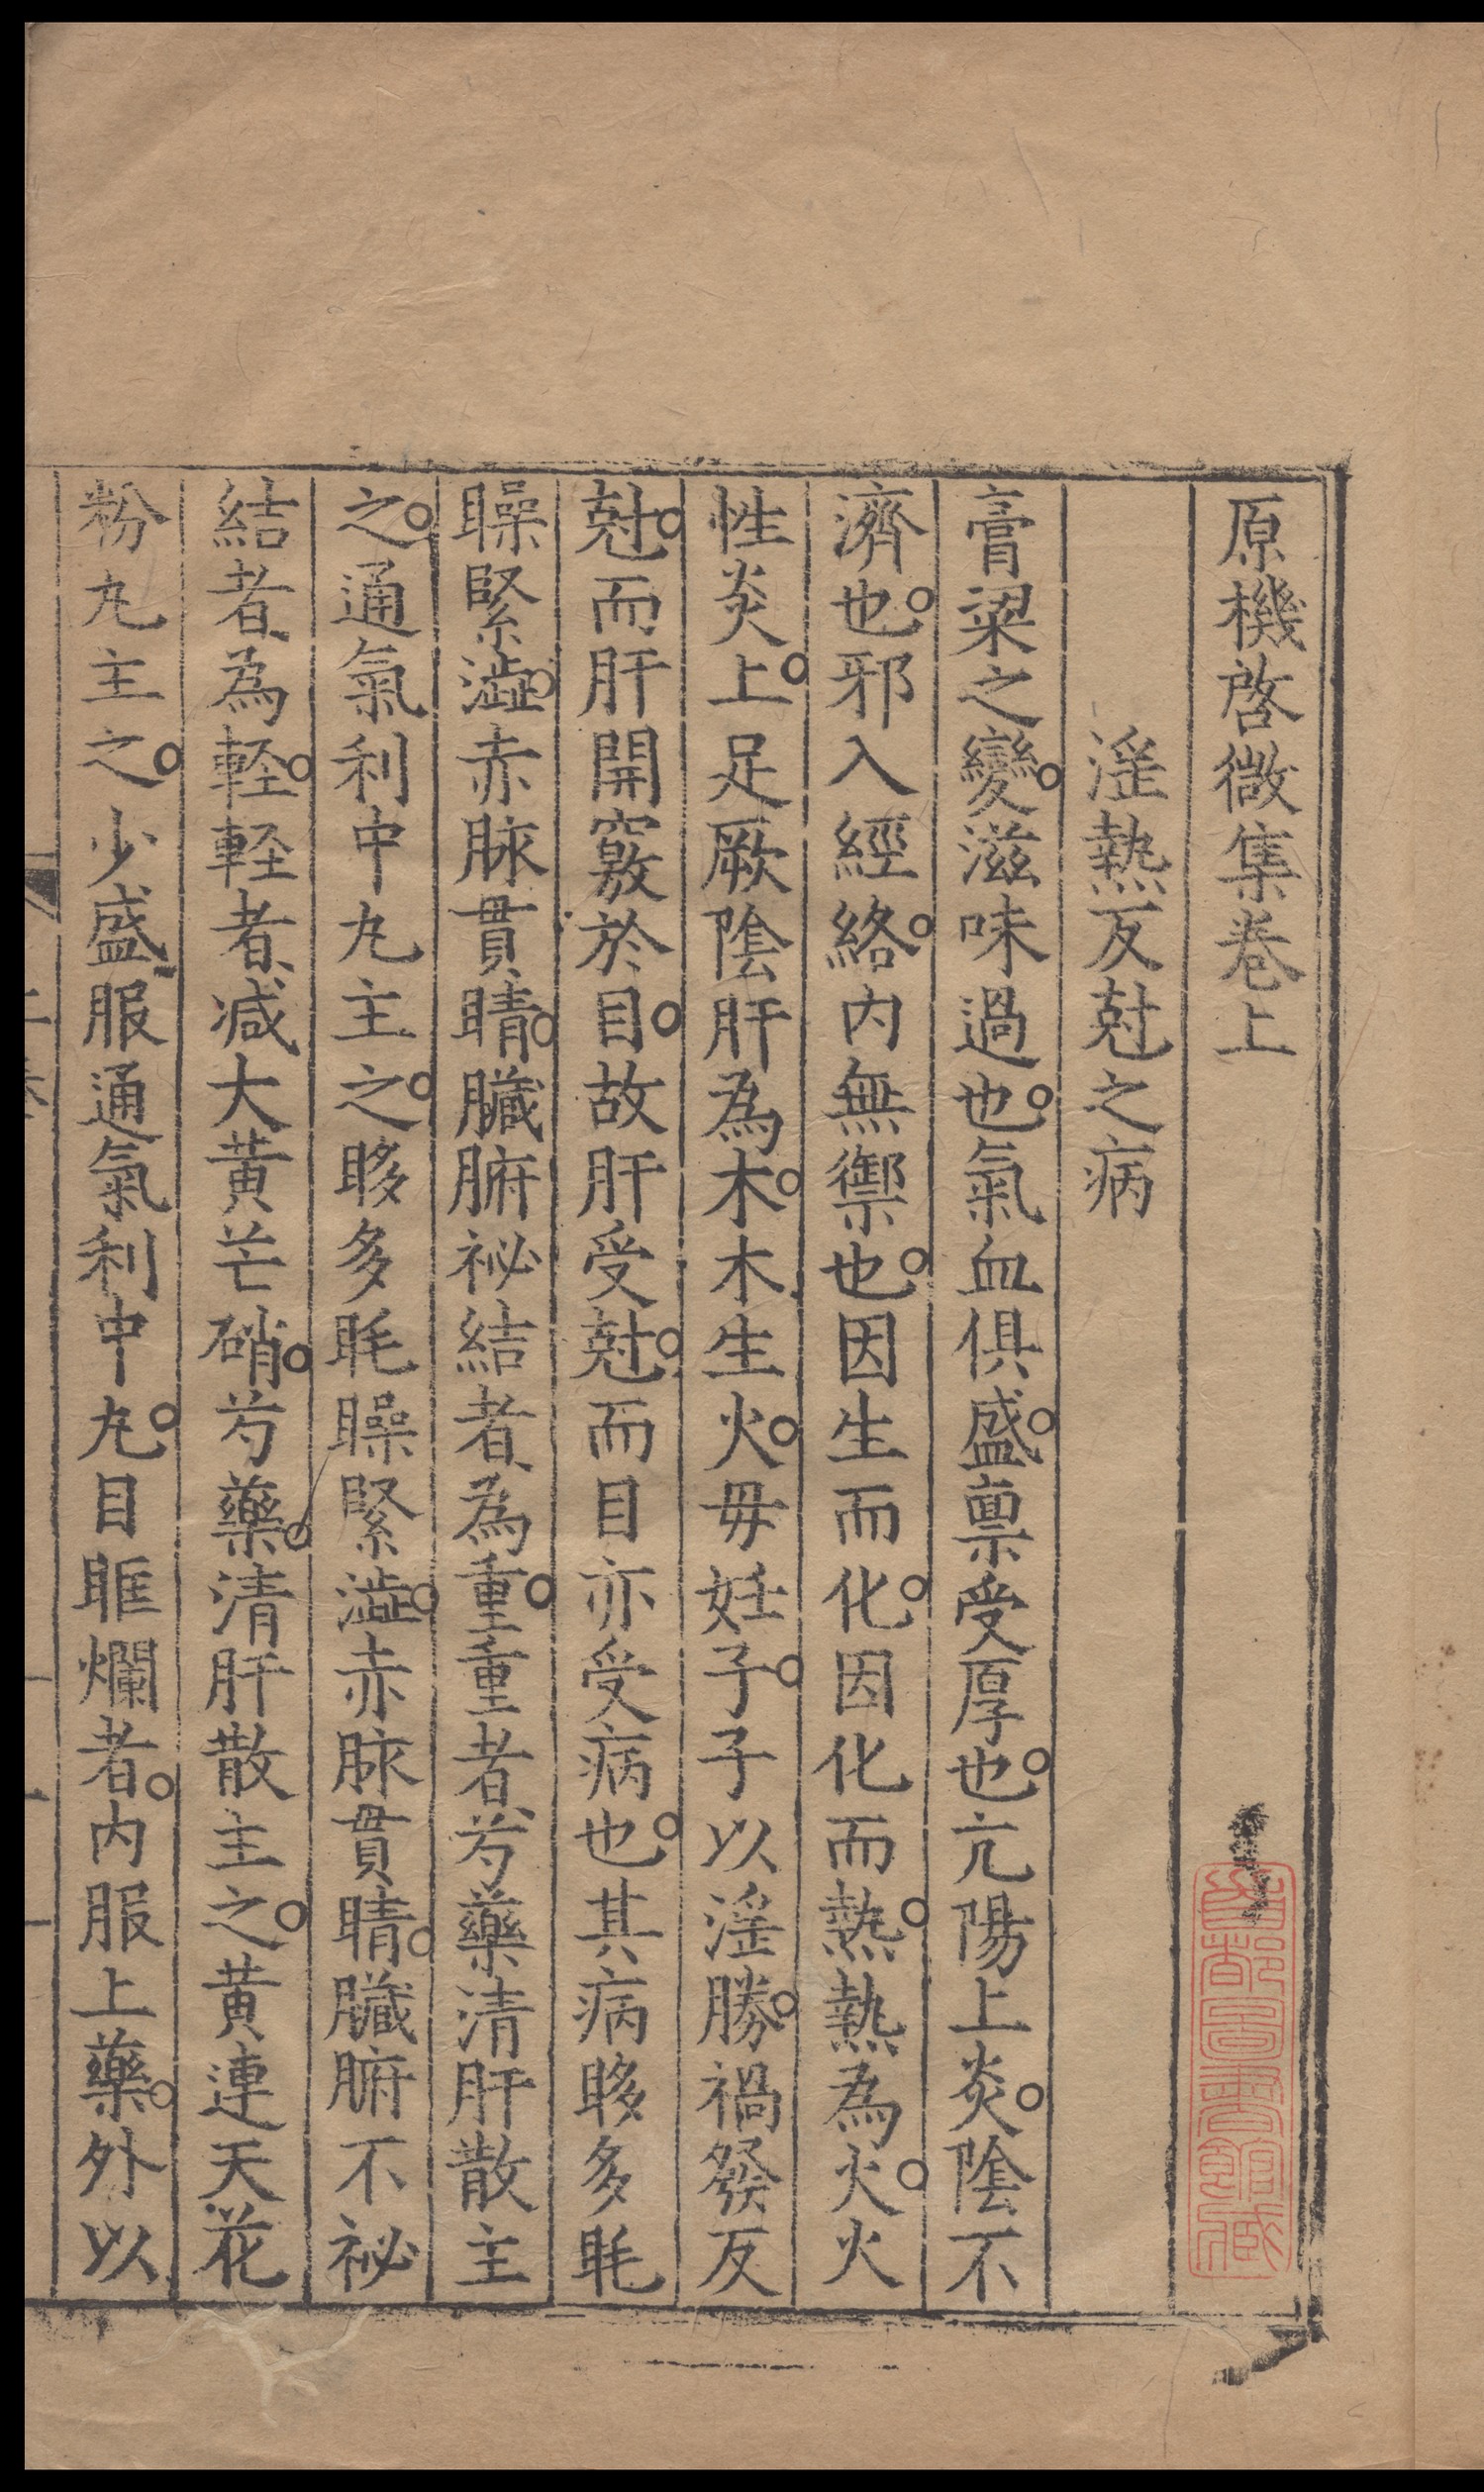 原機啓微集卷上
淫熱反尅之病
膏粱之變滋味過也氣血俱盛禀受厚也亢陽上炎陰不
濟也邪入經絡内無禦也因生而化因化而熱熱為火火
性炎上足厥陰肝為木木生火毋妊子子以淫勝禍發反
尅而肝開竅於目故肝受尅而目亦受病也其病眵多眊
矂緊澁赤脉貫睛臓腑祕結者為重重者芍藥清肝散主
之通氣利中丸主之眵多眊矂緊澁赤脉貫睛臓腑不祕
結者為軽軽者减大黄芒硝芍藥清肝散主之黄連天花
粉丸主之少盛服通氣利中丸目眶爛者内服上藥外以
首都圖書館藏